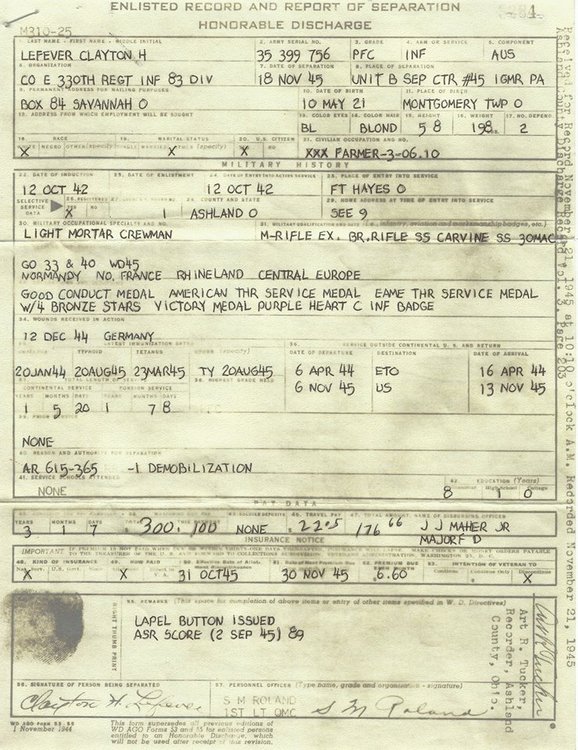 ENLISTED RECORD AND REPORT OF SEPARATION
HONORABLE DISCHARGE
M310-25
1. LAST NAME - FIRST NAME - MIDDLE INITIAL 2. ARMY SERIAL NO. 3. GRADE 4. ARM OR SERVICE 5. COMPONENT
LEFEVER CLAYTON H 35 399 756 PFC INF AUS
6. ORGANIZATION 7. DATE OF SEPARATION 8. PLACE OF SEPARATION
CO E 330TH REGT INF 83 DIV 18 NOV 45 UNIT B SEP CTR #45 IGMR PA
9. PERMANENT ADDRESS FOR MAILING PURPOSES 10. DATE OF BIRTH 11. PLACE OF BIRTH
BOX 84 SAVANNAH O 10 MAY 21 MONTGOMERY TWP O
12. ADDRESS FROM WHICH EMPLOYMENT WILL BE SOUGHT 13. COLOR EYES 14. COLOR HAIR 15. HEIGHT 16. WEIGHT 17. NO. DEPEND.
BL BLOND 5 8 198 2
18. RACE 19. MARITAL STATUS 20. U.S. CITIZEN 21. CIVILIAN OCCUPATION AND NO.
X X X XXX FARMER-3-06.10
MILITARY HISTORY
22. DATE OF INDUCTION 23. DATE OF ENLISTMENT 24. DATE OF ENTRY INTO ACTIVE SERVICE 25. PLACE OF ENTRY INTO SERVICE
12 OCT 42 12 OCT 42 FT HAYES O
SELECTIVE SERVICE DATA 26. REGISTERED 28. COUNTY AND STATE 29. HOME ADDRESS AT TIME OF ENTRY INTO SERVICE
X 1 ASHLAND O SEE 9
30. MILITARY OCCUPATIONAL SPECIALTY AND NO.
LIGHT MORTAR CREWMAN M-RIFLE EX. BR.RIFLE SS CARVINE SS 30MAC
GO 33 & 40 WD45
NORMANDY NO. FRANCE RHINELAND CENTRAL EUROPE
GOOD CONDUCT MEDAL AMERICAN THR SERVICE MEDAL EAME THR SERVICE MEDAL
W/4 BRONZE STARS VICTORY MEDAL PURPLE HEART C INF BADGE
34. WOUNDS RECEIVED IN ACTION
12 DEC 44 GERMANY
LATEST IMMUNIZATION DATES 36. SERVICE OUTSIDE CONTINENTAL U. S. AND RETURN
TYPHOID TETANUS DATE OF DEPARTURE DESTINATION DATE OF ARRIVAL
20JAN44 20AUG45 23MAR45 TY 20AUG45 6 APR 44 ETO 16 APR 44
6 NOV 45 US 13 NOV 45
37. TOTAL LENGTH OF SERVICE 38. HIGHEST GRADE HELD
CONTINENTAL SERVICE FOREIGN SERVICE
YEARS MONTHS DAYS YEARS MONTHS DAYS
1 5 20 1 7 8
39. PRIOR SERVICE
NONE
40. REASON AND AUTHORITY FOR SEPARATION
AR 615-365 -1 DEMOBILIZATION
41. SERVICE SCHOOLS ATTENDED 42. EDUCATION (Years)
NONE 8 1 0
PAY DATA
YEARS MONTHS DAYS
3 1 7 300. 100 NONE 22 05 176 66 J J MAHER JR
MAJOR F D
INSURANCE NOTICE
48. KIND OF INSURANCE 49. HOW PAID 53. INTENTION OF VETERAN TO
X X 31 OCT45 30 NOV 45 6.60 X
RIGHT THUMB PRINT
55. REMARKS (This space for completion of above items or entry of other items specified in W. D. Directives)
LAPEL BUTTON ISSUED
ASR SCORE (2 SEP 45) 89
56. SIGNATURE OF PERSON BEING SEPARATED 57. PERSONNEL OFFICER (Type name, grade and organization - signature)
Clayton H. Lefever S M ROLAND
1ST LT QMC S M Roland
WD AGO FORM 53-55
1 November 1944
This form supersedes all previous editions of
WD AGO Forms 53 and 55 for enlisted persons
entitled to an Honorable Discharge, which
will not be used after receipt of this revision.
Received for Record November 21, 1945 at 10:10 o'clock A.M. Recorded November 21, 1945
Art R. Tucker,
Recorder, Ashland
County, Ohio.